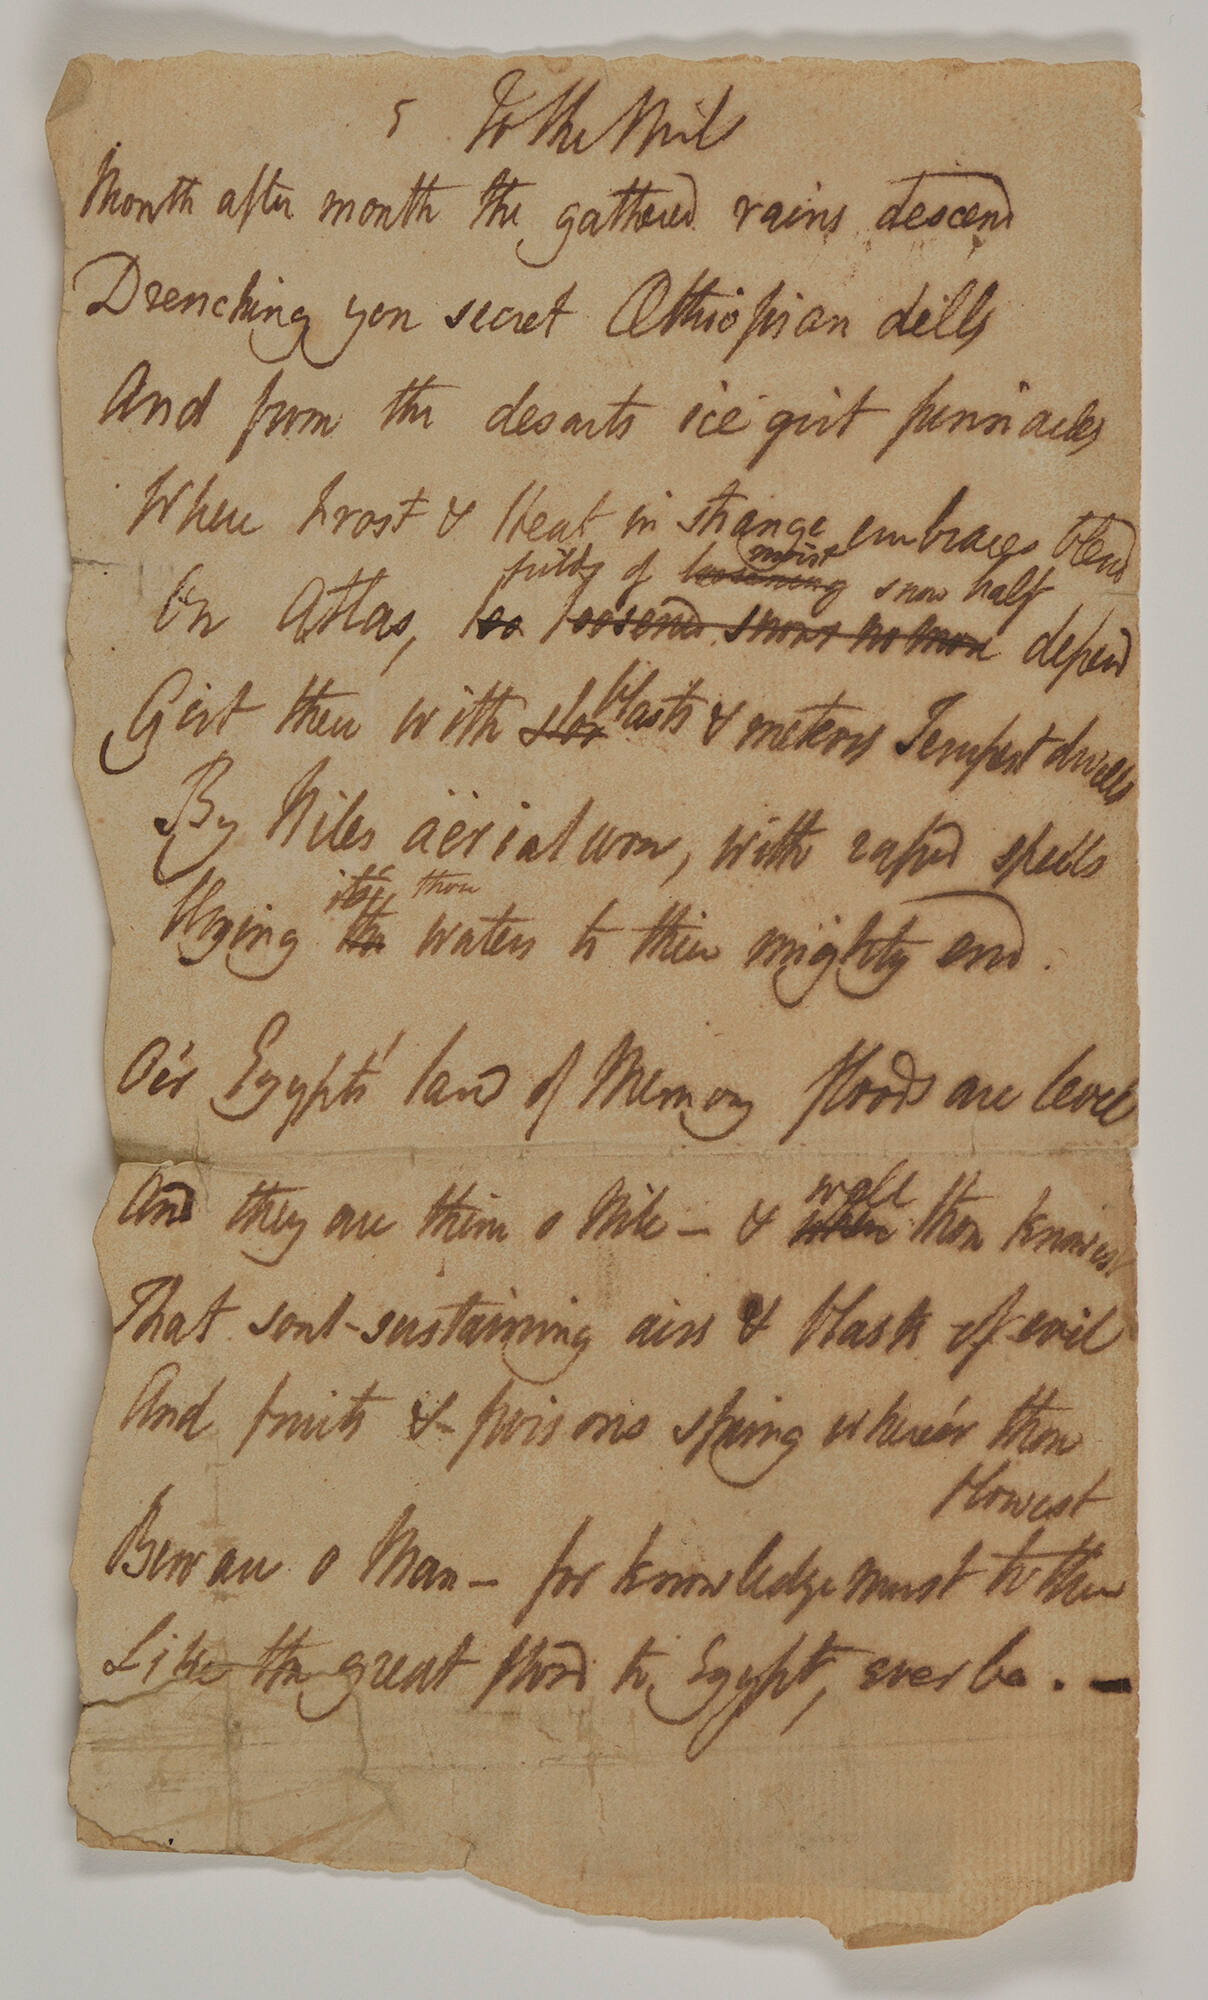 5 To the Nile
Month after month the gathered rains descend
Drenching yon secret Æthiopian dells
And from the desarts ice girt pinnacles
Where Frost & Heat in strange embraces blend
fields of loosening moist snow half
On Atlas, loosend snows no more depend
Girt there with blasts & meteors Tempest dwells
By Niles aërial urn, with rapid spells
its thou
Urging the waters to their mighty end.
O'er Egypts' land of Memory floods are level
well
And they are thine o Nile — & when thou knowest
That soul-sustaining airs & blasts of evil
And fruits & poisons spring where'er thou
flowest
Beware o Man — for knowledge must to thee
Like the great flood to Egypt, ever be. —